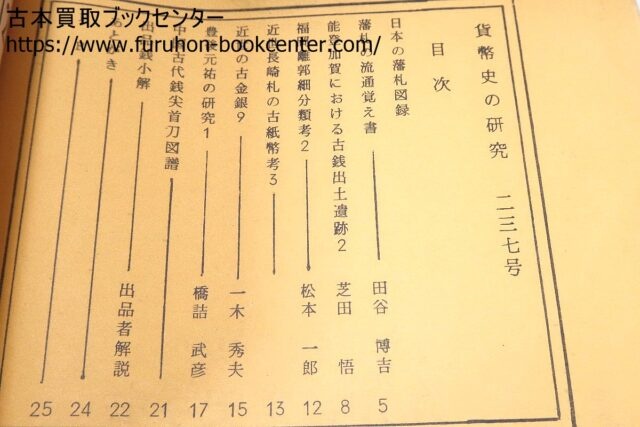 古本買取ブックセンター
https://www.furuhon-bookcenter.com/
貨幣史の研究 二三七号
目次
日本の藩札図録
藩札の流通覚え書 田谷博吉 5
能登加賀における古銭出土遺跡2 芝田悟 8
福 離郭細分類考2 松本一郎 12
近 長崎札の古紙幣考3 13
近 の古金銀9 一木秀夫 15
豊 元祐の研究1 橋詰武彦 17
中 古代銭尖首刀図譜 21
出品銭小解 出品者解説 22
あとがき 24
25